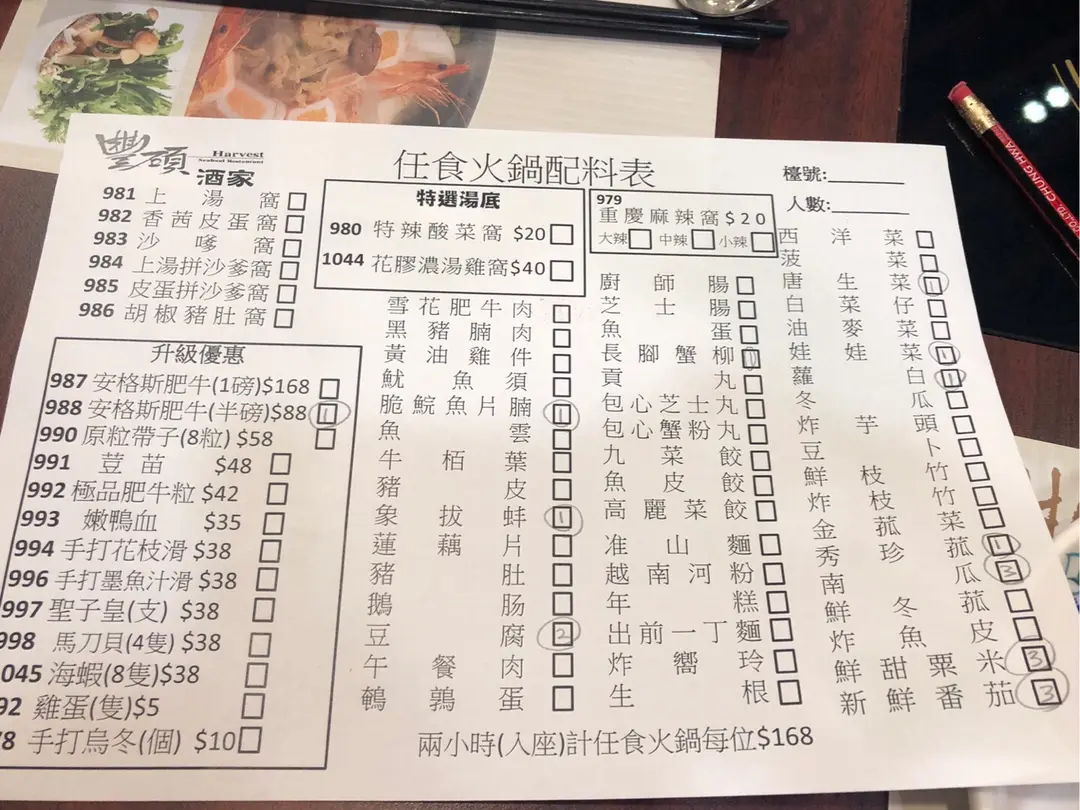 豐碩
Harvest
Seafood Restaurant
酒家
任食火鍋配料表
檯號:
人數:
981 上湯窩
982 香茜皮蛋窩
983 沙嗲窩
984 上湯拼沙爹窩
985 皮蛋拼沙爹窩
986 胡椒豬肚窩
特選湯底
980 特辣酸菜窩 $20
1044 花膠濃湯雞窩$40
979
重慶麻辣窩$20
大辣 中辣 小辣
升級優惠
987 安格斯肥牛(1磅)$168
988 安格斯肥牛(半磅)$88 1
990 原粒帶子(8粒) $58
991 荳苗 $48
992 極品肥牛粒 $42
993 嫩鴨血 $35
994 手打花枝滑 $38
996 手打墨魚汁滑 $38
997 聖子皇(支) $38
998 馬刀貝(4隻) $38
045 海蝦(8隻)$38
92 雞蛋(隻)$5
8 手打烏冬(個) $10
雪花肥牛肉
黑豬腩肉
黃油雞件
魷魚須
脆鯇魚片腩 1
魚雲
牛栢葉
豬皮
象拔蚌 1
蓮藕片
豬肚
鵝肠
豆腐 2
午餐肉
鵪鶉蛋
廚師腸
芝士腸
魚蛋
長腳蟹柳
貢丸
包心芝士丸
包心蟹粉丸
九菜餃
魚皮餃
高麗菜餃
准山麵
越南河粉
年糕
出前一丁麵
炸嚮玲
生根
西洋菜
菠菜
唐生菜 1
白菜仔
油麥菜
娃娃菜 1
蘿白 1
冬瓜
炸芋頭
豆卜
鮮枝竹
炸枝竹
金菰菜
秀珍菰 1
南瓜 3
鮮冬菰
炸魚皮
鮮甜粟米 3
新鮮番茄 3
兩小時(入座)計任食火鍋每位$168
CO.LTD. CHUNG HWA